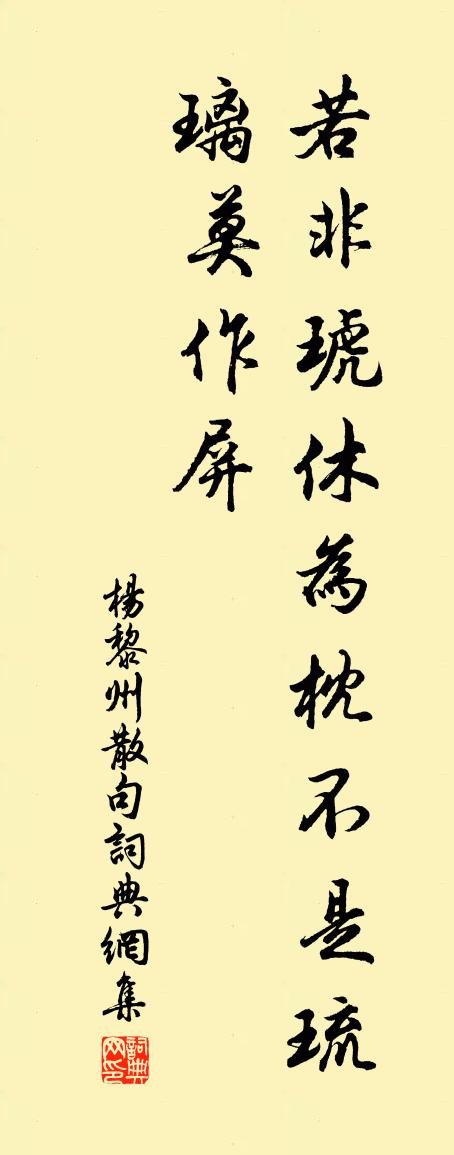 若非琥休為枕不是琉
璃莫作屏
楊黎州散句詞典網集
詞典网印